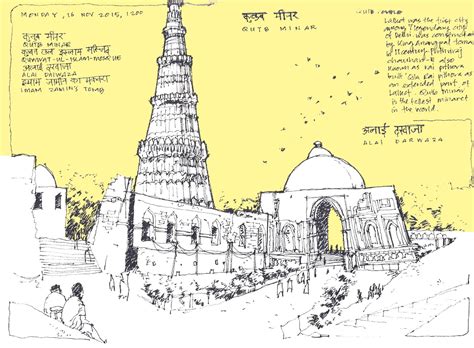 MONDAY, 16 NOV 2015, 1200
कुतब मीनार
QUTB MINAR
इस्लाम मस्जिद
QUWWAT-UL-ISLAM-MOSQUE
अलाई दरवाजा
ALAI DARWAZA
इमाम जामीन का मकबरा
IMAM ZAMIN'S TOMB
कुतब मीनार
QUTB MINAR
Lalkot was the first city
among 7 legendary citys
of Delhi was constructed
by King Anangpal tomar
century. Prithviraj
chauhan-II also
known as rai pithora
built Qila Rai pithora as
an extended part of
Lalkot. Qutb Minar
is the tallest minaret
in the world.
अलाई दरवाजा
ALAI DARWAZA